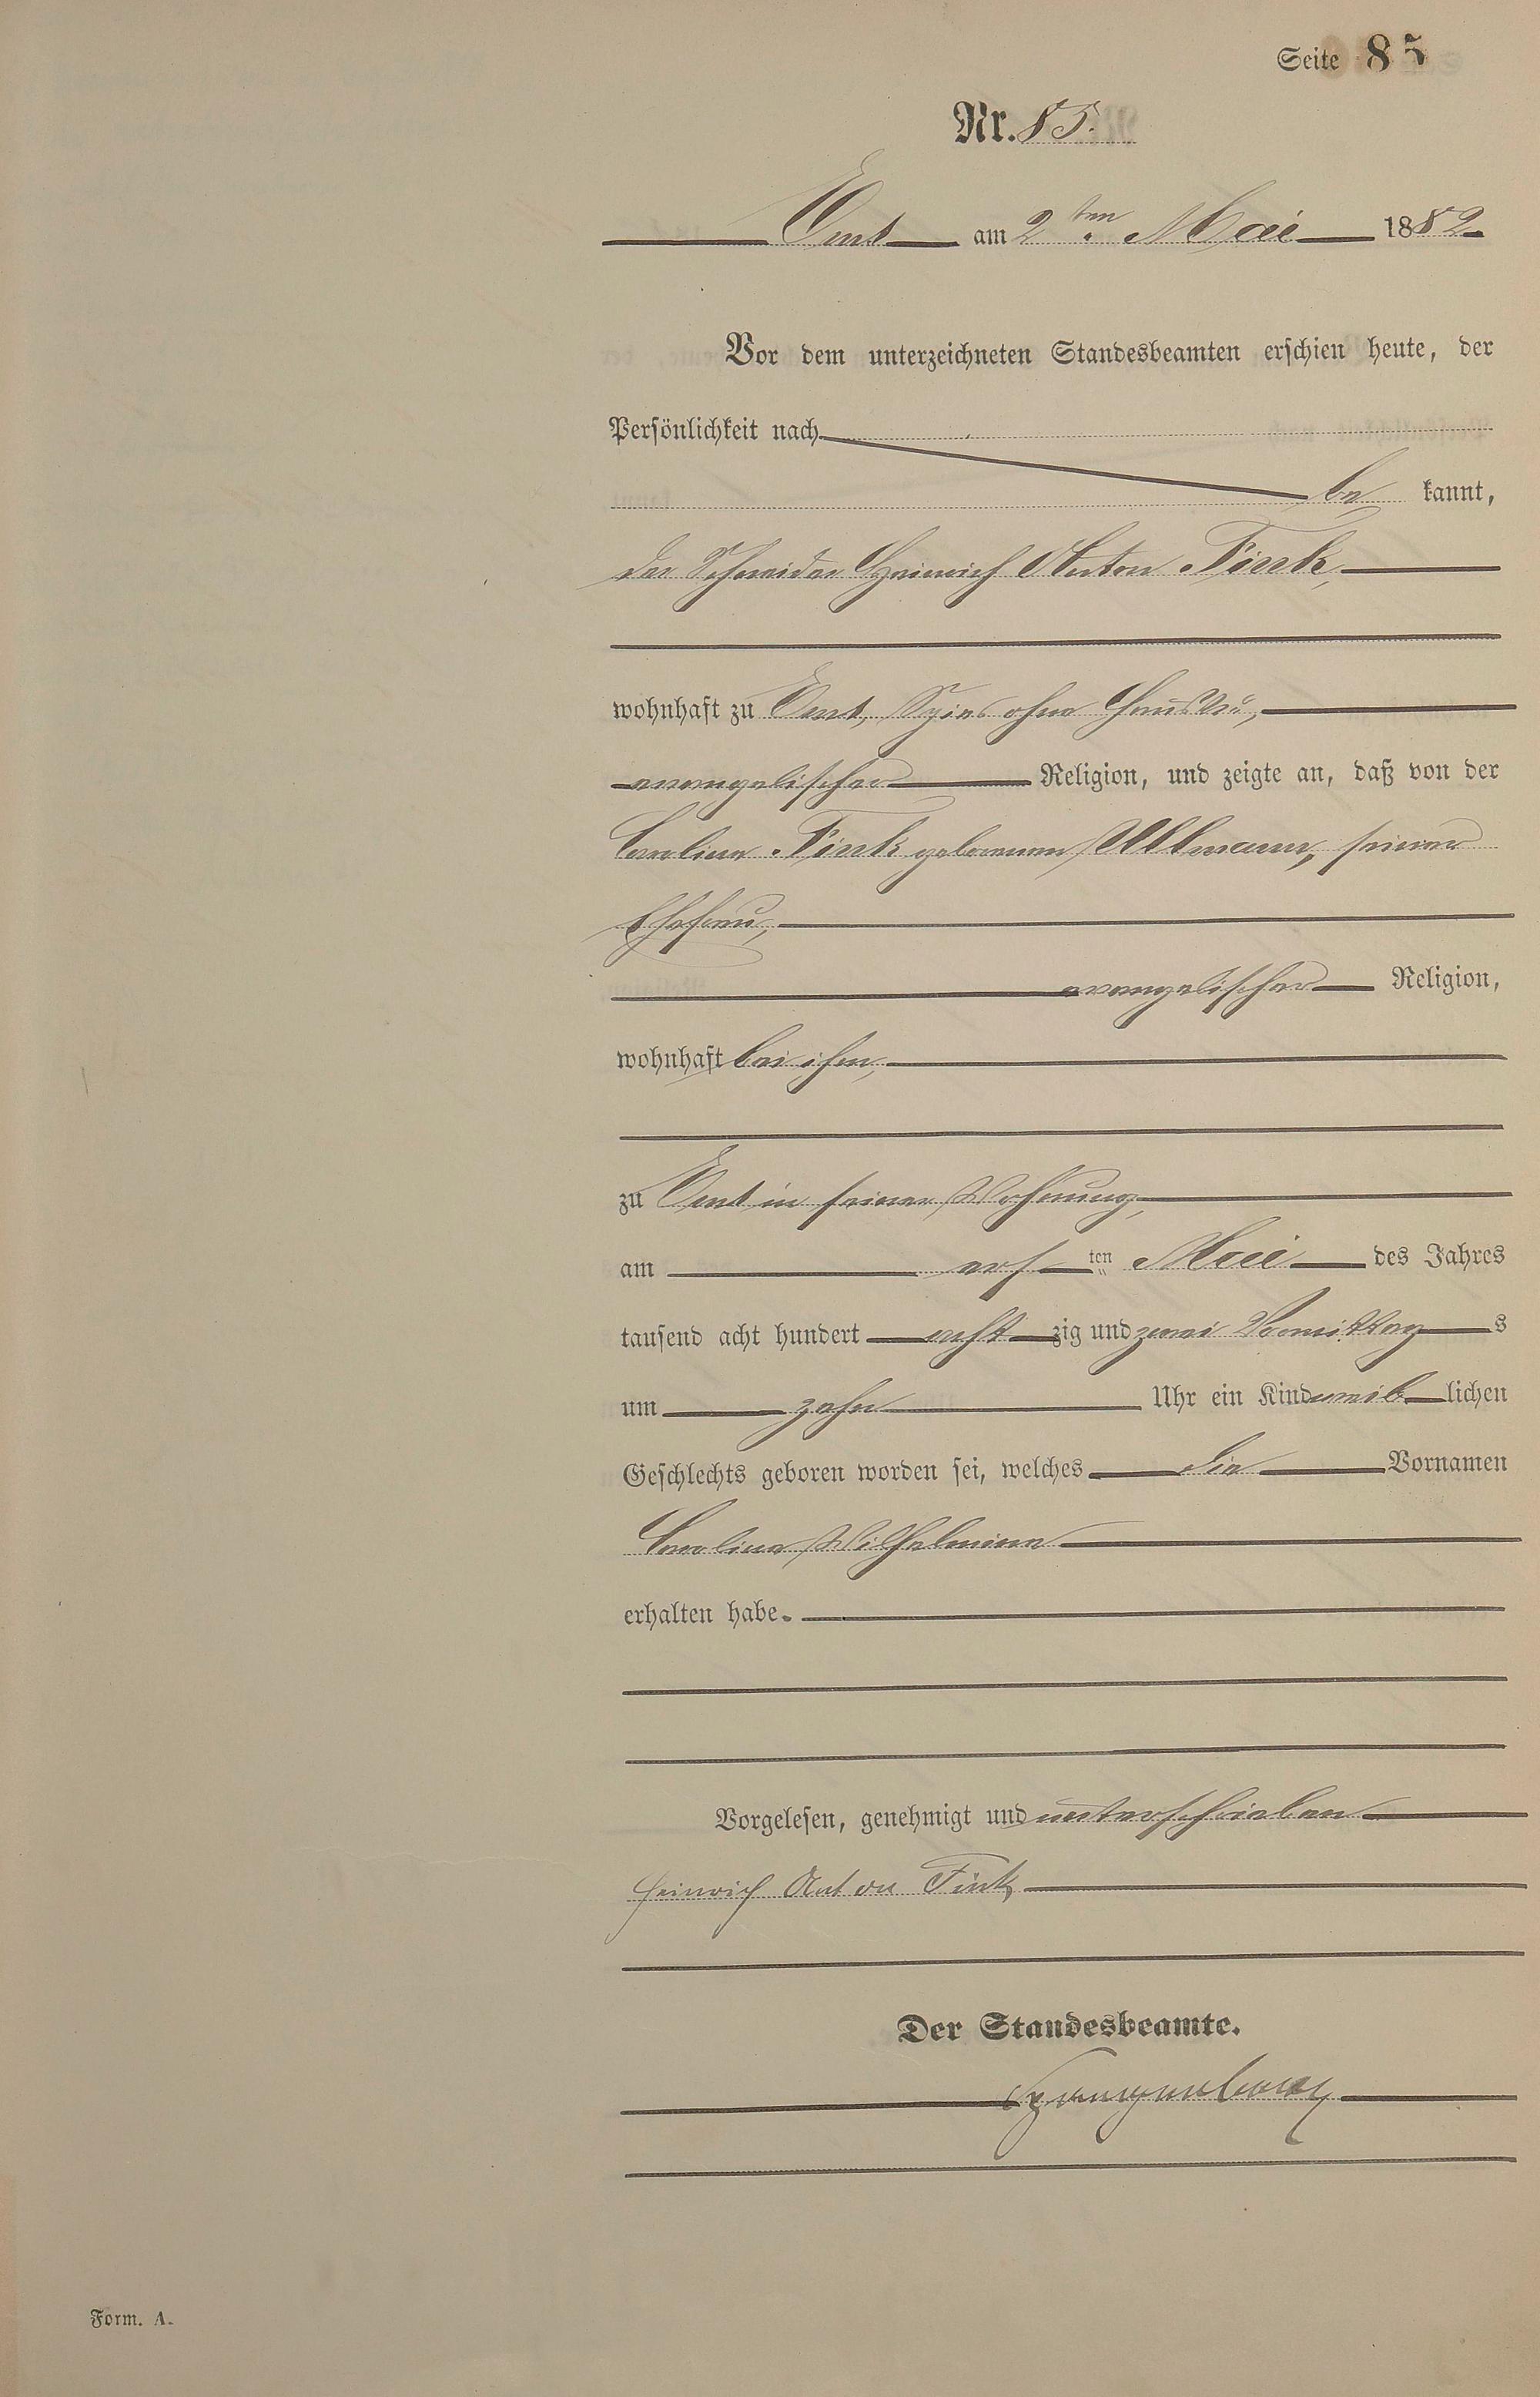 Seite 85
Nr. 85.
Ems am 2ten. Mai 1882
Vor dem unterzeichneten Standesbeamten erschien heute, der
Persönlichkeit nach
be kannt,
der Schneider Heinrich Anton Fink,
wohnhaft zu Ems, Spies ohne Haus
evangelischer Religion, und zeigte an, daß von der
Caroline Fink geborenen Ullmann, seiner
Ehefrau,
evangelischer Religion,
wohnhaft bei ihm,
zu Ems in seiner Wohnung,
am ersten Mai des Jahres
tausend acht hundert achtzig und zwei Vormittags
um zehn Uhr ein Kind weiblichen
Geschlechts geboren worden sei, welches die Vornamen
Caroline Wilhelmine
erhalten habe.
Vorgelesen, genehmigt und unterschrieben
Heinrich Anton Fink
Der Standesbeamte.
Spangenberg
Form. A.